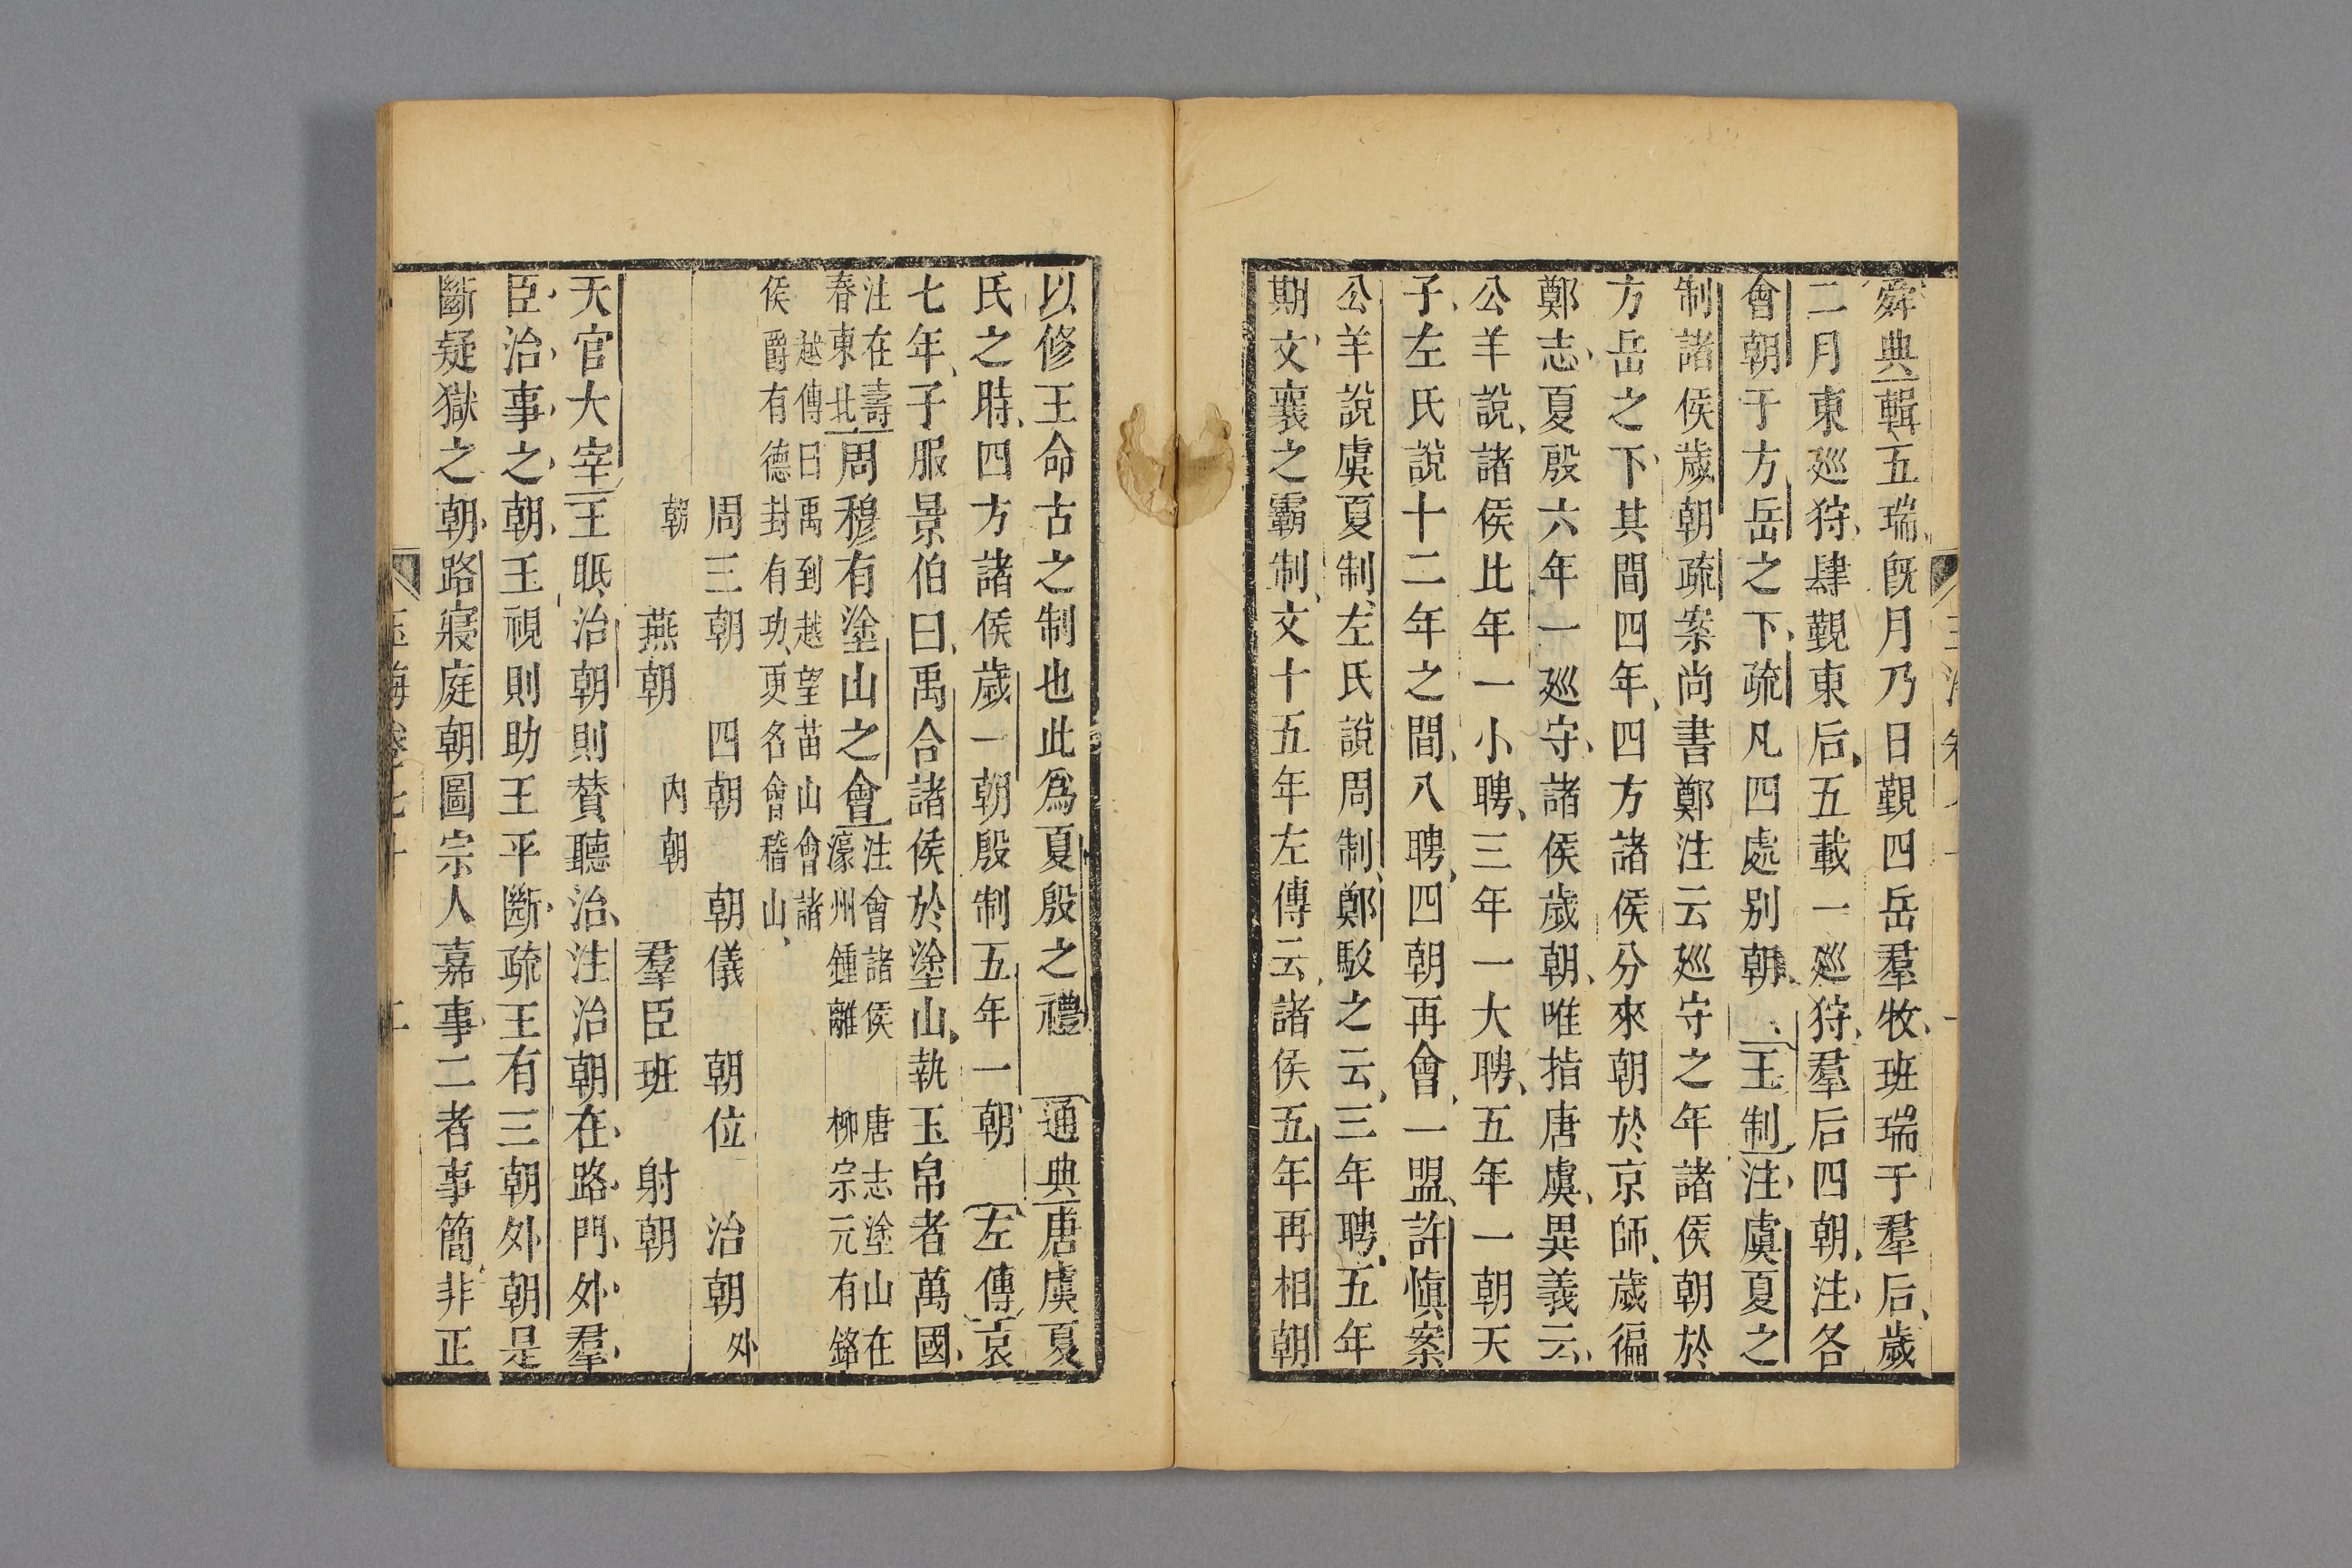 舜典輯五瑞旣月乃日覲四岳羣牧班瑞于羣后歲
二月東廵狩肆覲東后五載一廵狩羣后四朝注各
會朝于方岳之下疏凡四處别朝王制注虞夏之
制諸侯歲朝疏案尚書鄭注云廵守之年諸侯朝於
方岳之下其間四年四方諸侯分來朝於京師歲徧
鄭志夏殷六年一廵守諸侯歲朝唯指唐虞異義云
公羊說諸侯比年一小聘三年一大聘五年一朝天
子左氏說十二年之間八聘四朝再會一盟許愼案
公羊說虞夏制左氏說周制鄭駁之云三年聘五年
期文襄之霸制文十五年左傳云諸侯五年再相朝
以修王命古之制也此爲夏殷之禮 通典唐虞夏
氏之時四方諸侯歲一朝殷制五年一朝 左傳哀
七年子服景伯曰禹合諸侯於塗山執玉帛者萬國
注在壽
春東北
周穆有塗山之會
注會諸侯 唐志塗山在
濠州鍾離 柳宗元有銘
越傳曰禹到越望苗山會諸
侯爵有德封有功更名會稽山
周三朝 四朝 朝儀 朝位 治朝 外
朝
燕朝 內朝 羣臣班 射朝
天官大宰王眂治朝則贊聽治注治朝在路門外羣
臣治事之朝王視則助王平斷疏王有三朝外朝是
斷疑獄之朝路寢庭朝圖宗人嘉事二者事簡非正